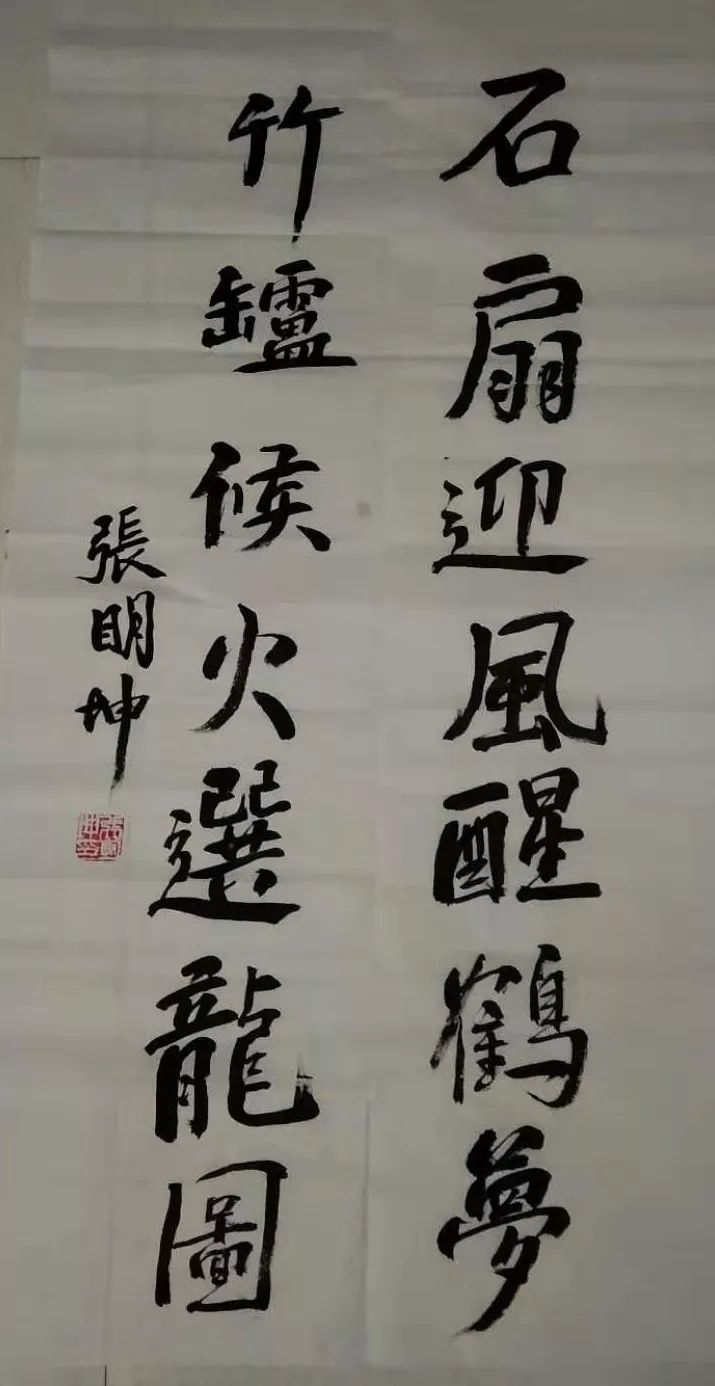 石扇迎風醒鶴夢
竹罏候火選龍圖
張明坤